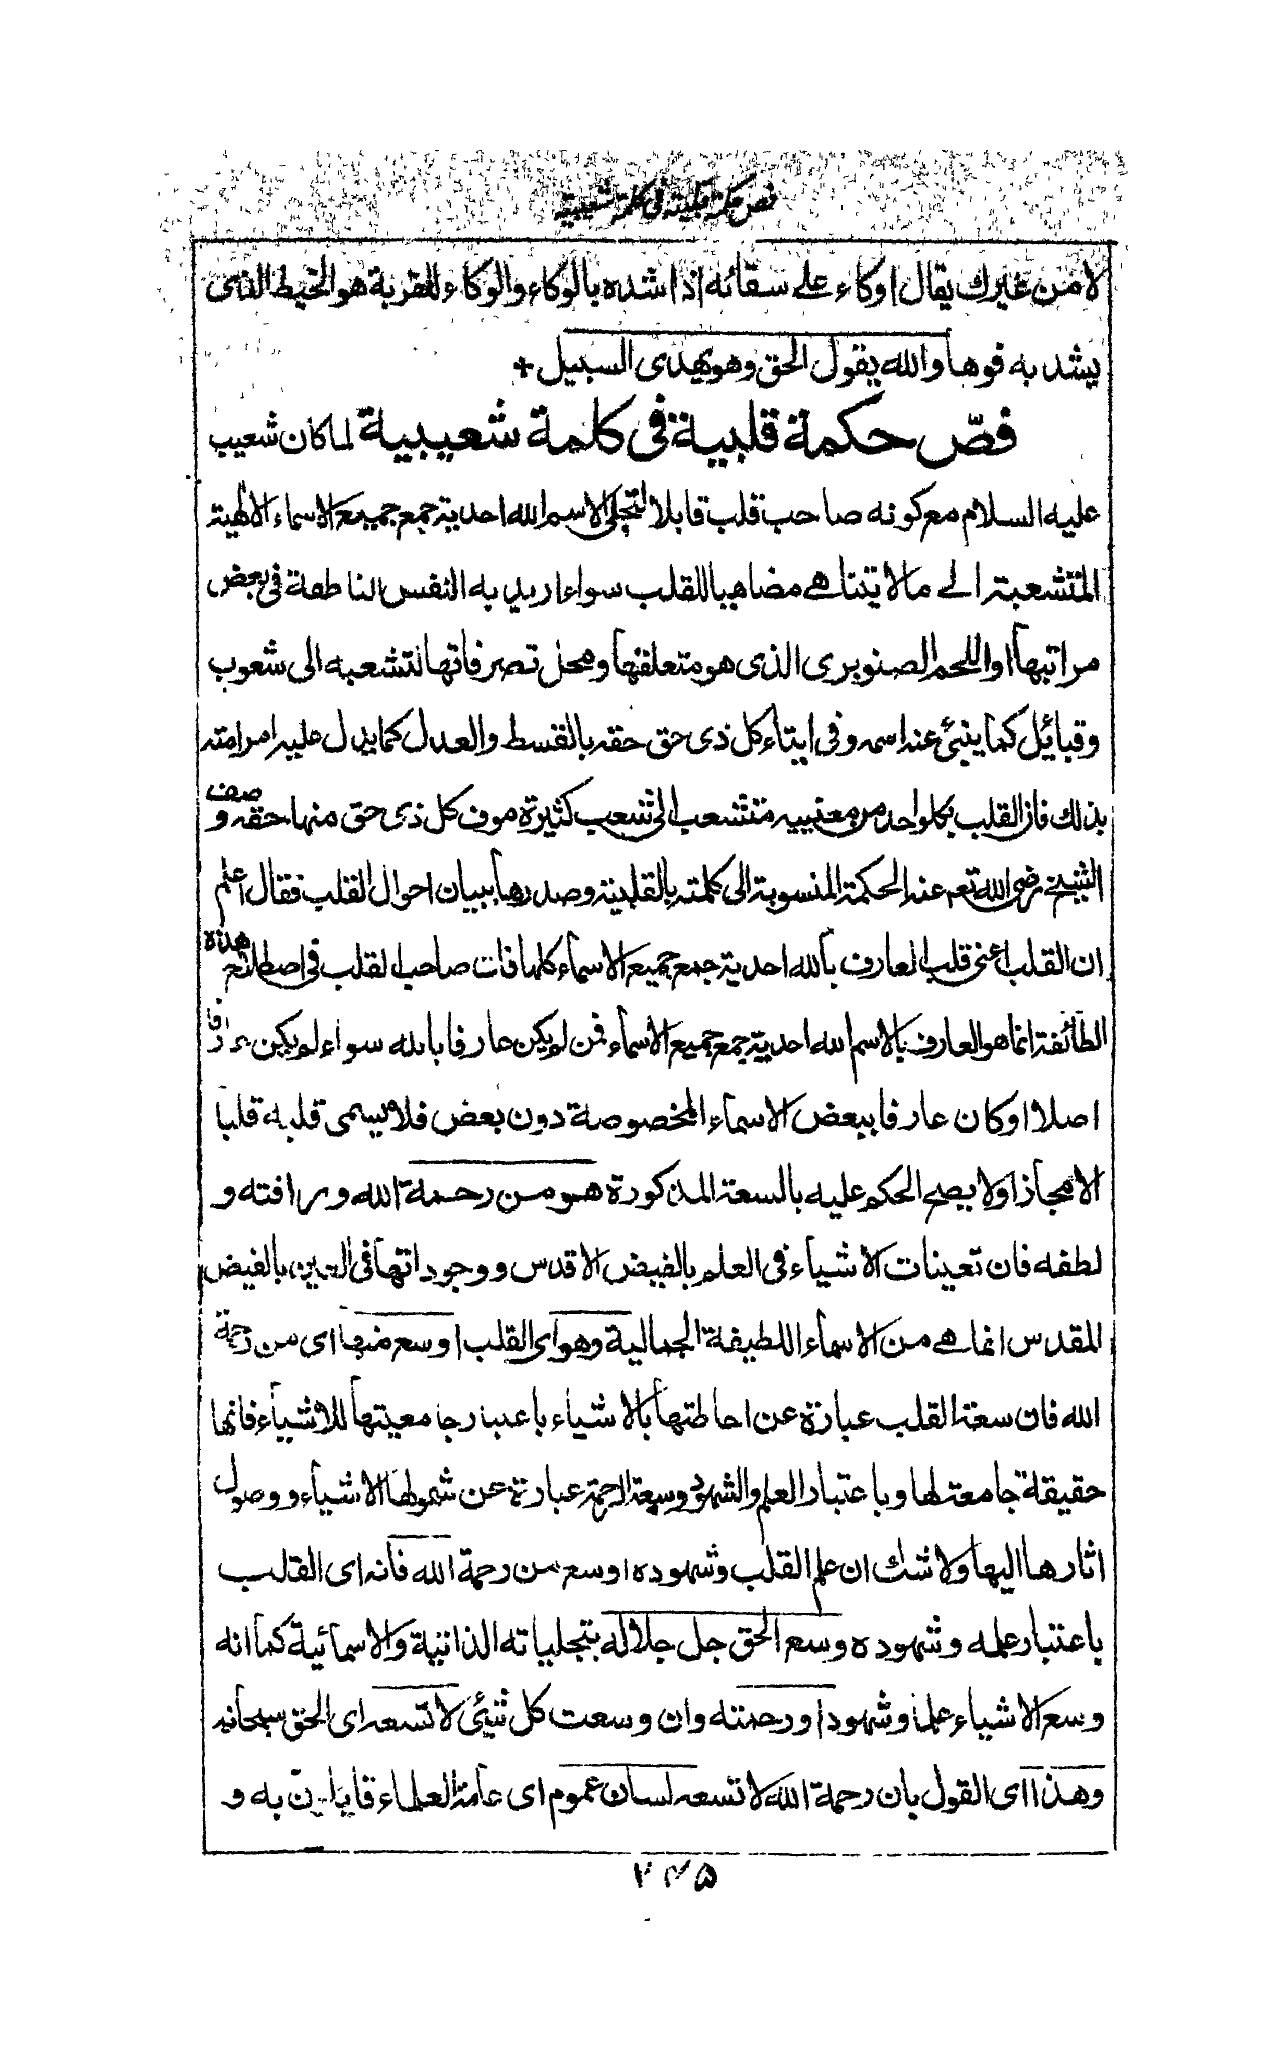 فص حكمة قلبية فى كلمة شعيبية
لا من غيرك يقال اوكاء على سقائه اذا شده بالوكاء والوكاء للقربة هو الخيط الذى
يشد به فوها والله يقول الحق وهو يهدى السبيل +
فصّ حكمة قلبية فى كلمة شعيبية لما كان شعيب
عليه السلام مع كونه صاحب قلب قابلا لتجلى الاسم الله احدية جمع جميع الاسماء الالهية
المتشعبة الى ما لا يتناهى مضاهيا للقلب سواء اريد به النفس الناطقة فى بعض
مراتبها او اللحم الصنوبرى الذى هو متعلقها ومحل تصرفاتها لتشعبه الى شعوب
وقبائل كما ينبئ عنه اسمه وفى ايتاء كل ذى حق حقه بالقسط والعدل كما يدل عليه امر امته
بذلك فان القلب بكلو احد من معنييه متشعب الى شعب كثيرة موف كل ذى حق منها حقه وصف
الشيخ رضى الله تعم عنه الحكمة المنسوبة الى كلمته بالقلبية وصدرها ببيان احوال القلب فقال اعلم
ان القلب اعنى قلب العارف بالله احدية جمع جميع الاسماء كلها فان صاحب القلب فى اصطلاح هذه
الطائفة انما هو العارف بالاسم الله احدية جمع جميع الاسماء فمن لم يكن عارفا بالله سواء لم يكن عارفا
اصلا او كان عارفا ببعض الاسماء المخصوصة دون بعض فلا يسمى قلبه قلبا
الا مجازا ولا يصح الحكم عليه بالسعة المذكورة هو من رحمة الله ورافته و
لطفه فان تعينات الاشياء فى العلم بالفيض الاقدس ووجوداتها فى العين بالفيض
المقدس انما هى من الاسماء اللطيفة الجمالية وهو اى القلب اوسع منها اى من رحمة
الله فان سعة القلب عبارة عن احاطتها بالاشياء باعتبار جامعيتها للاشياء فانها
حقيقة جامعة لها وباعتبار العلم والشهود وسعة الرحمة عبارة عن شمولها الاشياء ووصول
اثارها اليها ولا شك ان علم القلب وشهوده اوسع من رحمة الله فانه اى القلب
باعتبار علمه وشهوده وسع الحق جل جلاله بتجلياته الذاتية والاسمائية كما انه
وسع الاشياء علما وشهودا ورحمته وان وسعت كل شئ لا تسعه اى الحق سبحانه
وهذا اى القول بان رحمة الله لا تسعه لسان عموم اى عامة العلماء قايلون به و
۲۴۵